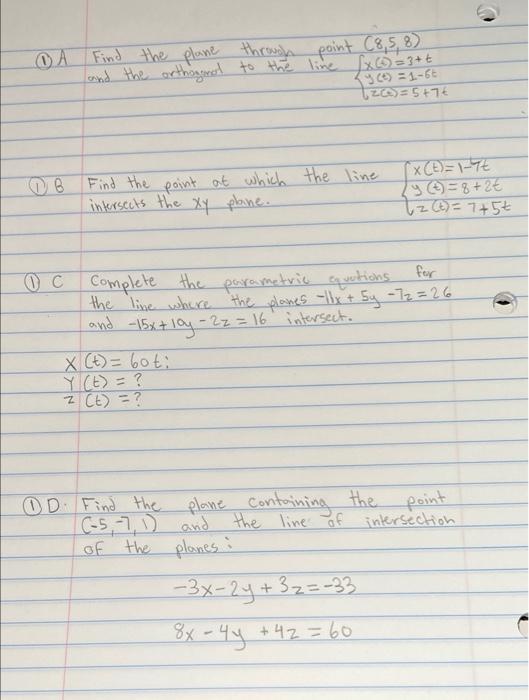 ① A Find the plane through point (8,5,8)
and the orthogonal to the line { x(t)=3+t
y(t)=1-6t
z(t)=5+7t
① B Find the point at which the line { x(t)=1-7t
intersects the xy plane. y(t)=8+2t
z(t)=7+5t
① C Complete the parametric equations for
the line where the planes -11x+5y-7z=26
and -15x+10y-2z=16 intersect.
X(t)=60t;
Y(t)=?
z(t)=?
① D. Find the plane containing the point
(-5,-7,1) and the line of intersection
of the planes:
-3x-2y+3z=-33
8x-4y+4z=60